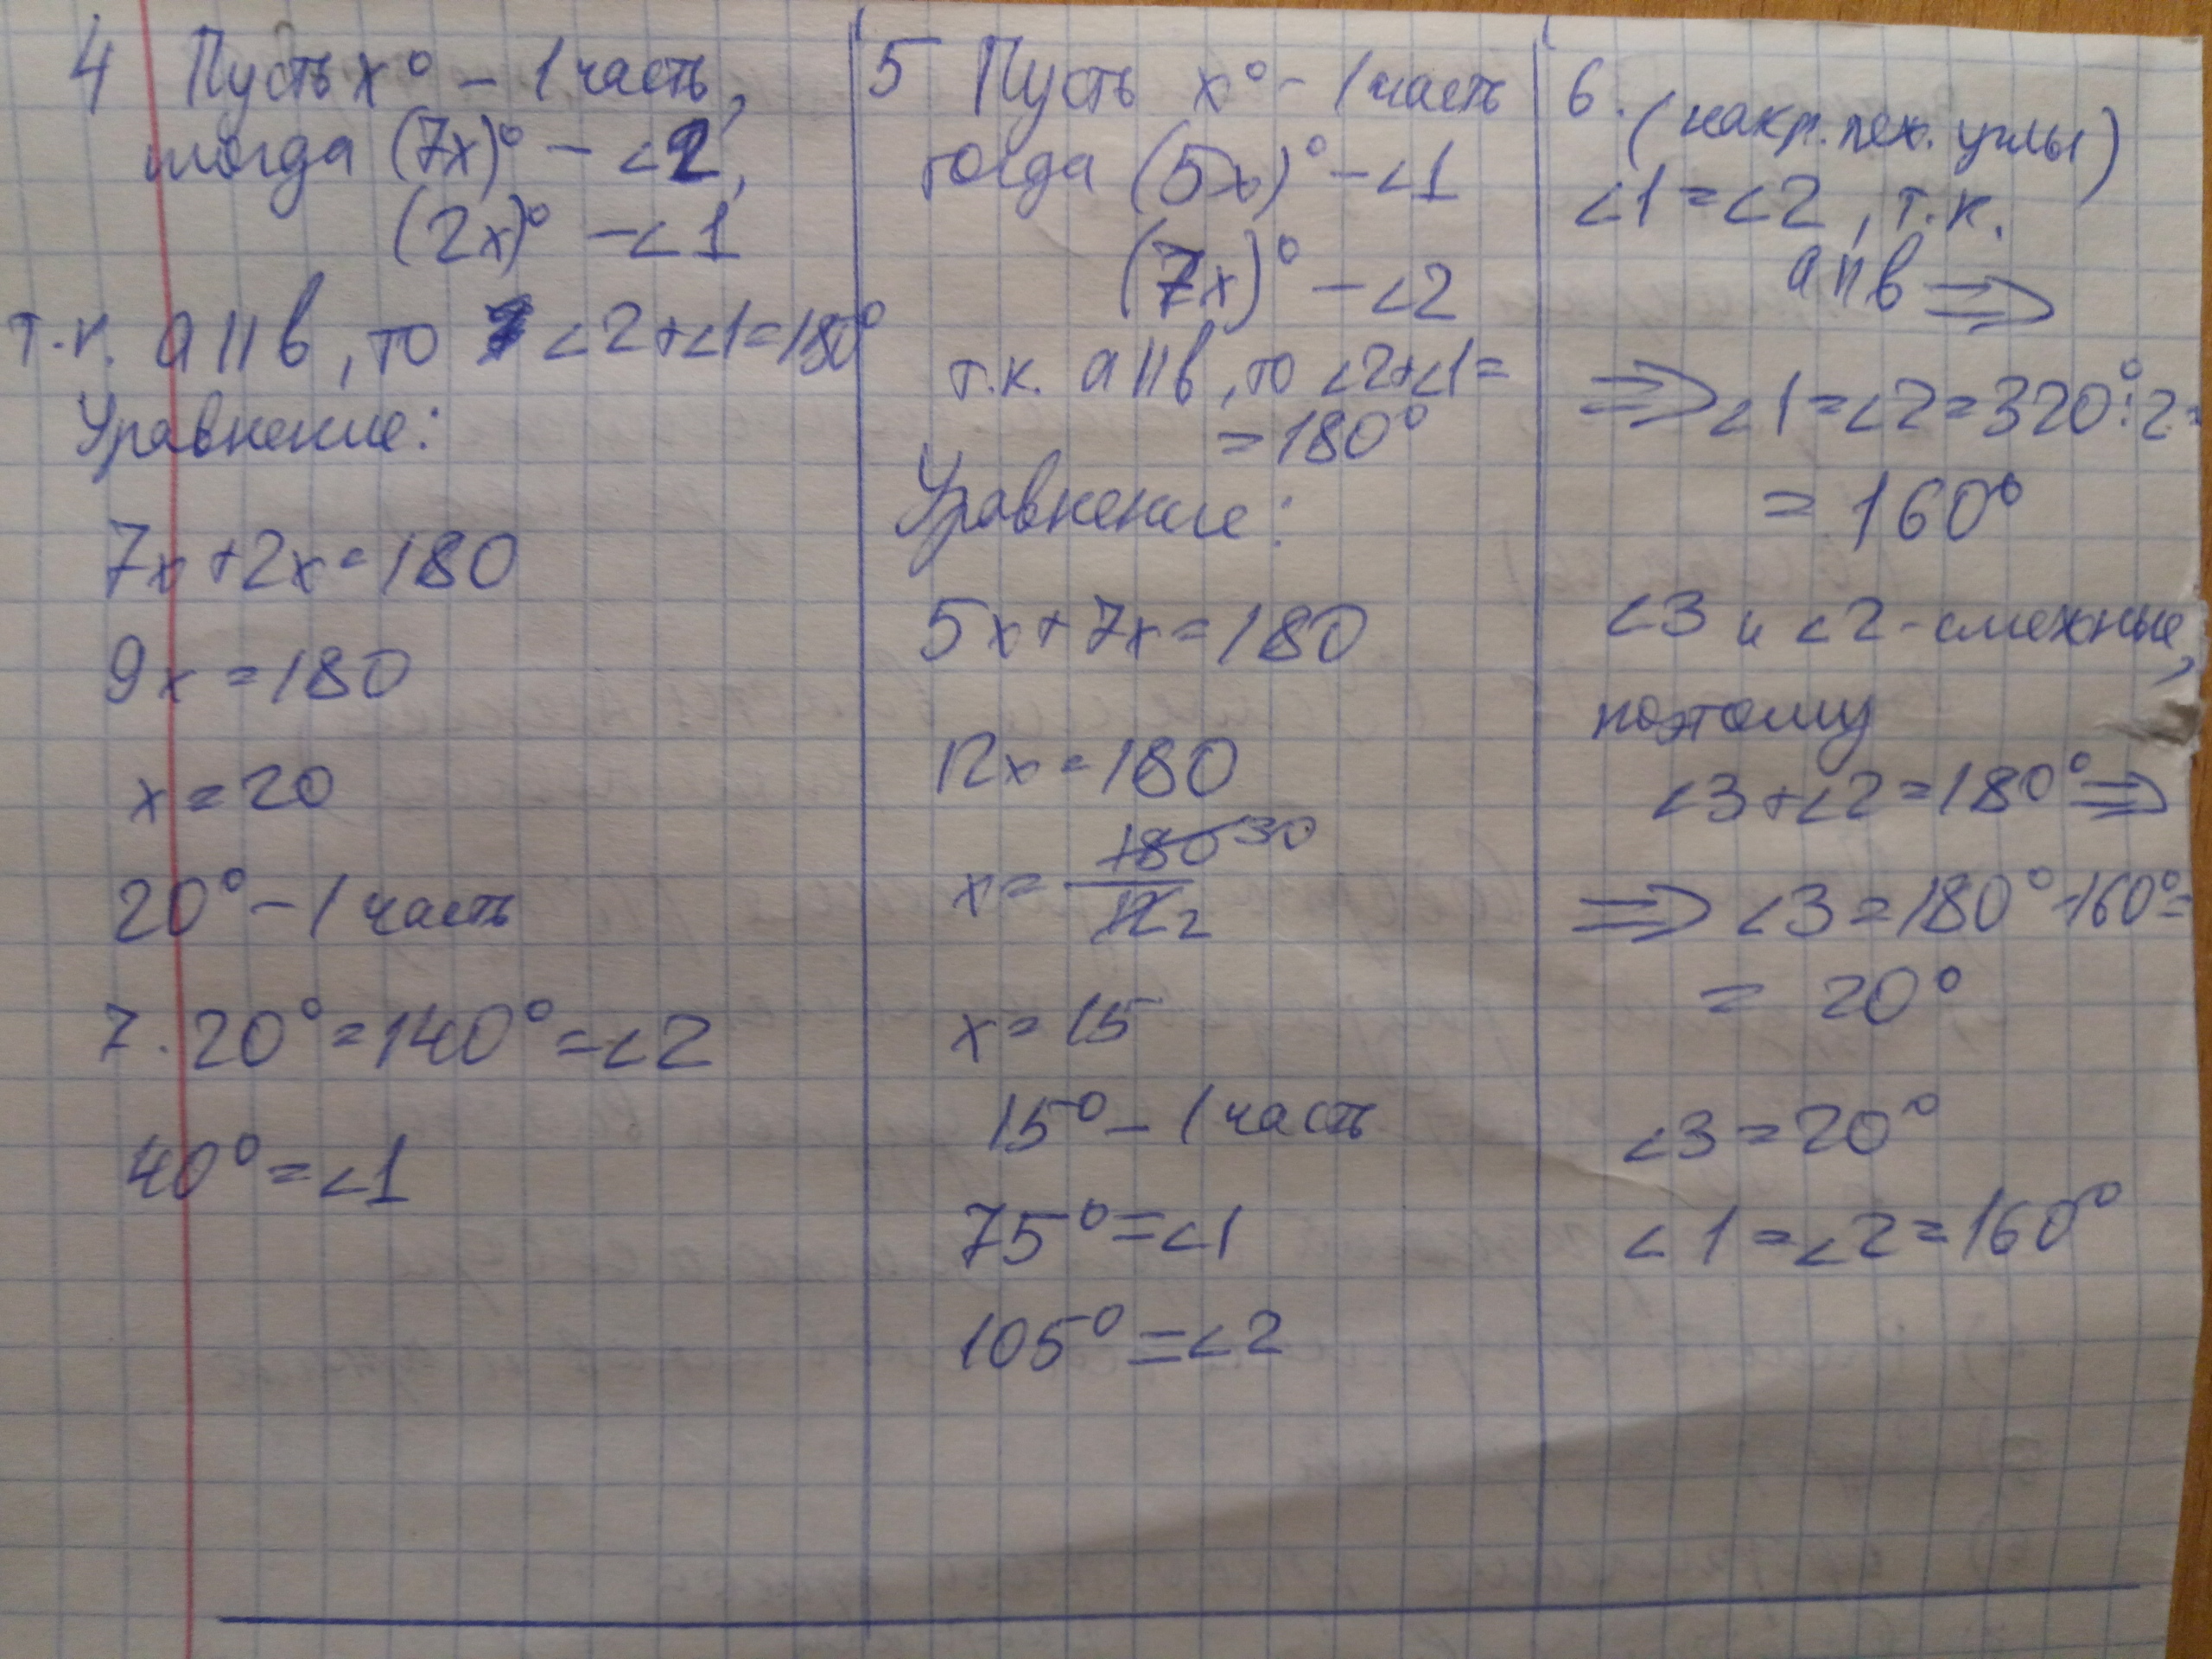 4 Пусть x° – 1 часть,
тогда (7x)° – ∠2,
(2x)° – ∠1
т.к. a || b, то ∠2+∠1=180°
Уравнение:
7x+2x=180
9x=180
x=20
20° – 1 часть
7·20°=140°=∠2
40°=∠1
5 Пусть x° – 1 часть
тогда (5x)° – ∠1
(7x)° – ∠2
т.к. a || b, то ∠2+∠1=
=180°
Уравнение:
5x+7x=180
12x=180
x= 180 30
12 2
x=15
15° – 1 часть
75°=∠1
105°=∠2
6. (накр. леж. углы)
∠1=∠2, т.к.
a || b ⇒
⇒ ∠1=∠2=320°:2=
=160°
∠3 и ∠2 - смежные,
поэтому
∠3+∠2=180° ⇒
⇒ ∠3=180°-160°=
= 20°
∠3=20°
∠1=∠2=160°